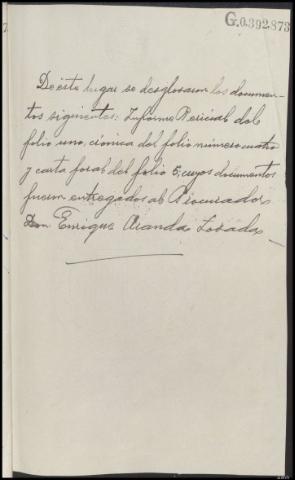 G.0.392.873
De éste lugar se desglosaron los documen-
tos siguientes: Informe Pericial del
folio uno, crónica del folio número cuatro
y carta foral del folio 5, cuyos documentos
fueron entregados al Procurador
Don Enrique Aranda Lozada